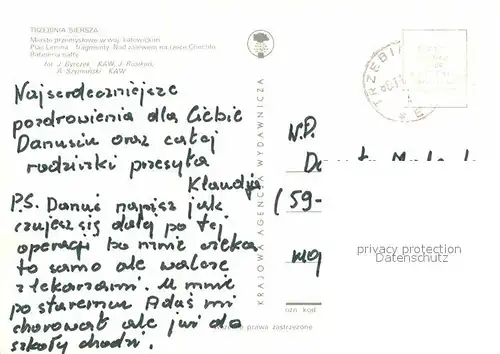 TRZEBINIA SIERSZA
Miasto przemysłowe w woj. katowickim
Plac Lenina - fragmenty. Nad zalewem na rzece Chechło
Rafineria nafty
fot. J. Tyrczek, KAW, J. KAW
A. Szymański KAW
Najserdeczniejsze
pozdrowienia dla Ciebie
Danusiu oraz całej
rodzinki przesyła
Klaudja
P.S. Danuś napisz jak
czujesz się dalej po tej
operacji bo mnie czeka
to samo ale walczę
z lekarzami. U mnie
po staremu Adaś mi
chorował ale już do
szkoły chodzi.
KRAJOWA AGENCJA WYDAWNICZA
TRZEBI
W.P.
(59-
privacy protection
Datenschutz
moj
ozn kod
prawa zastrzeżone